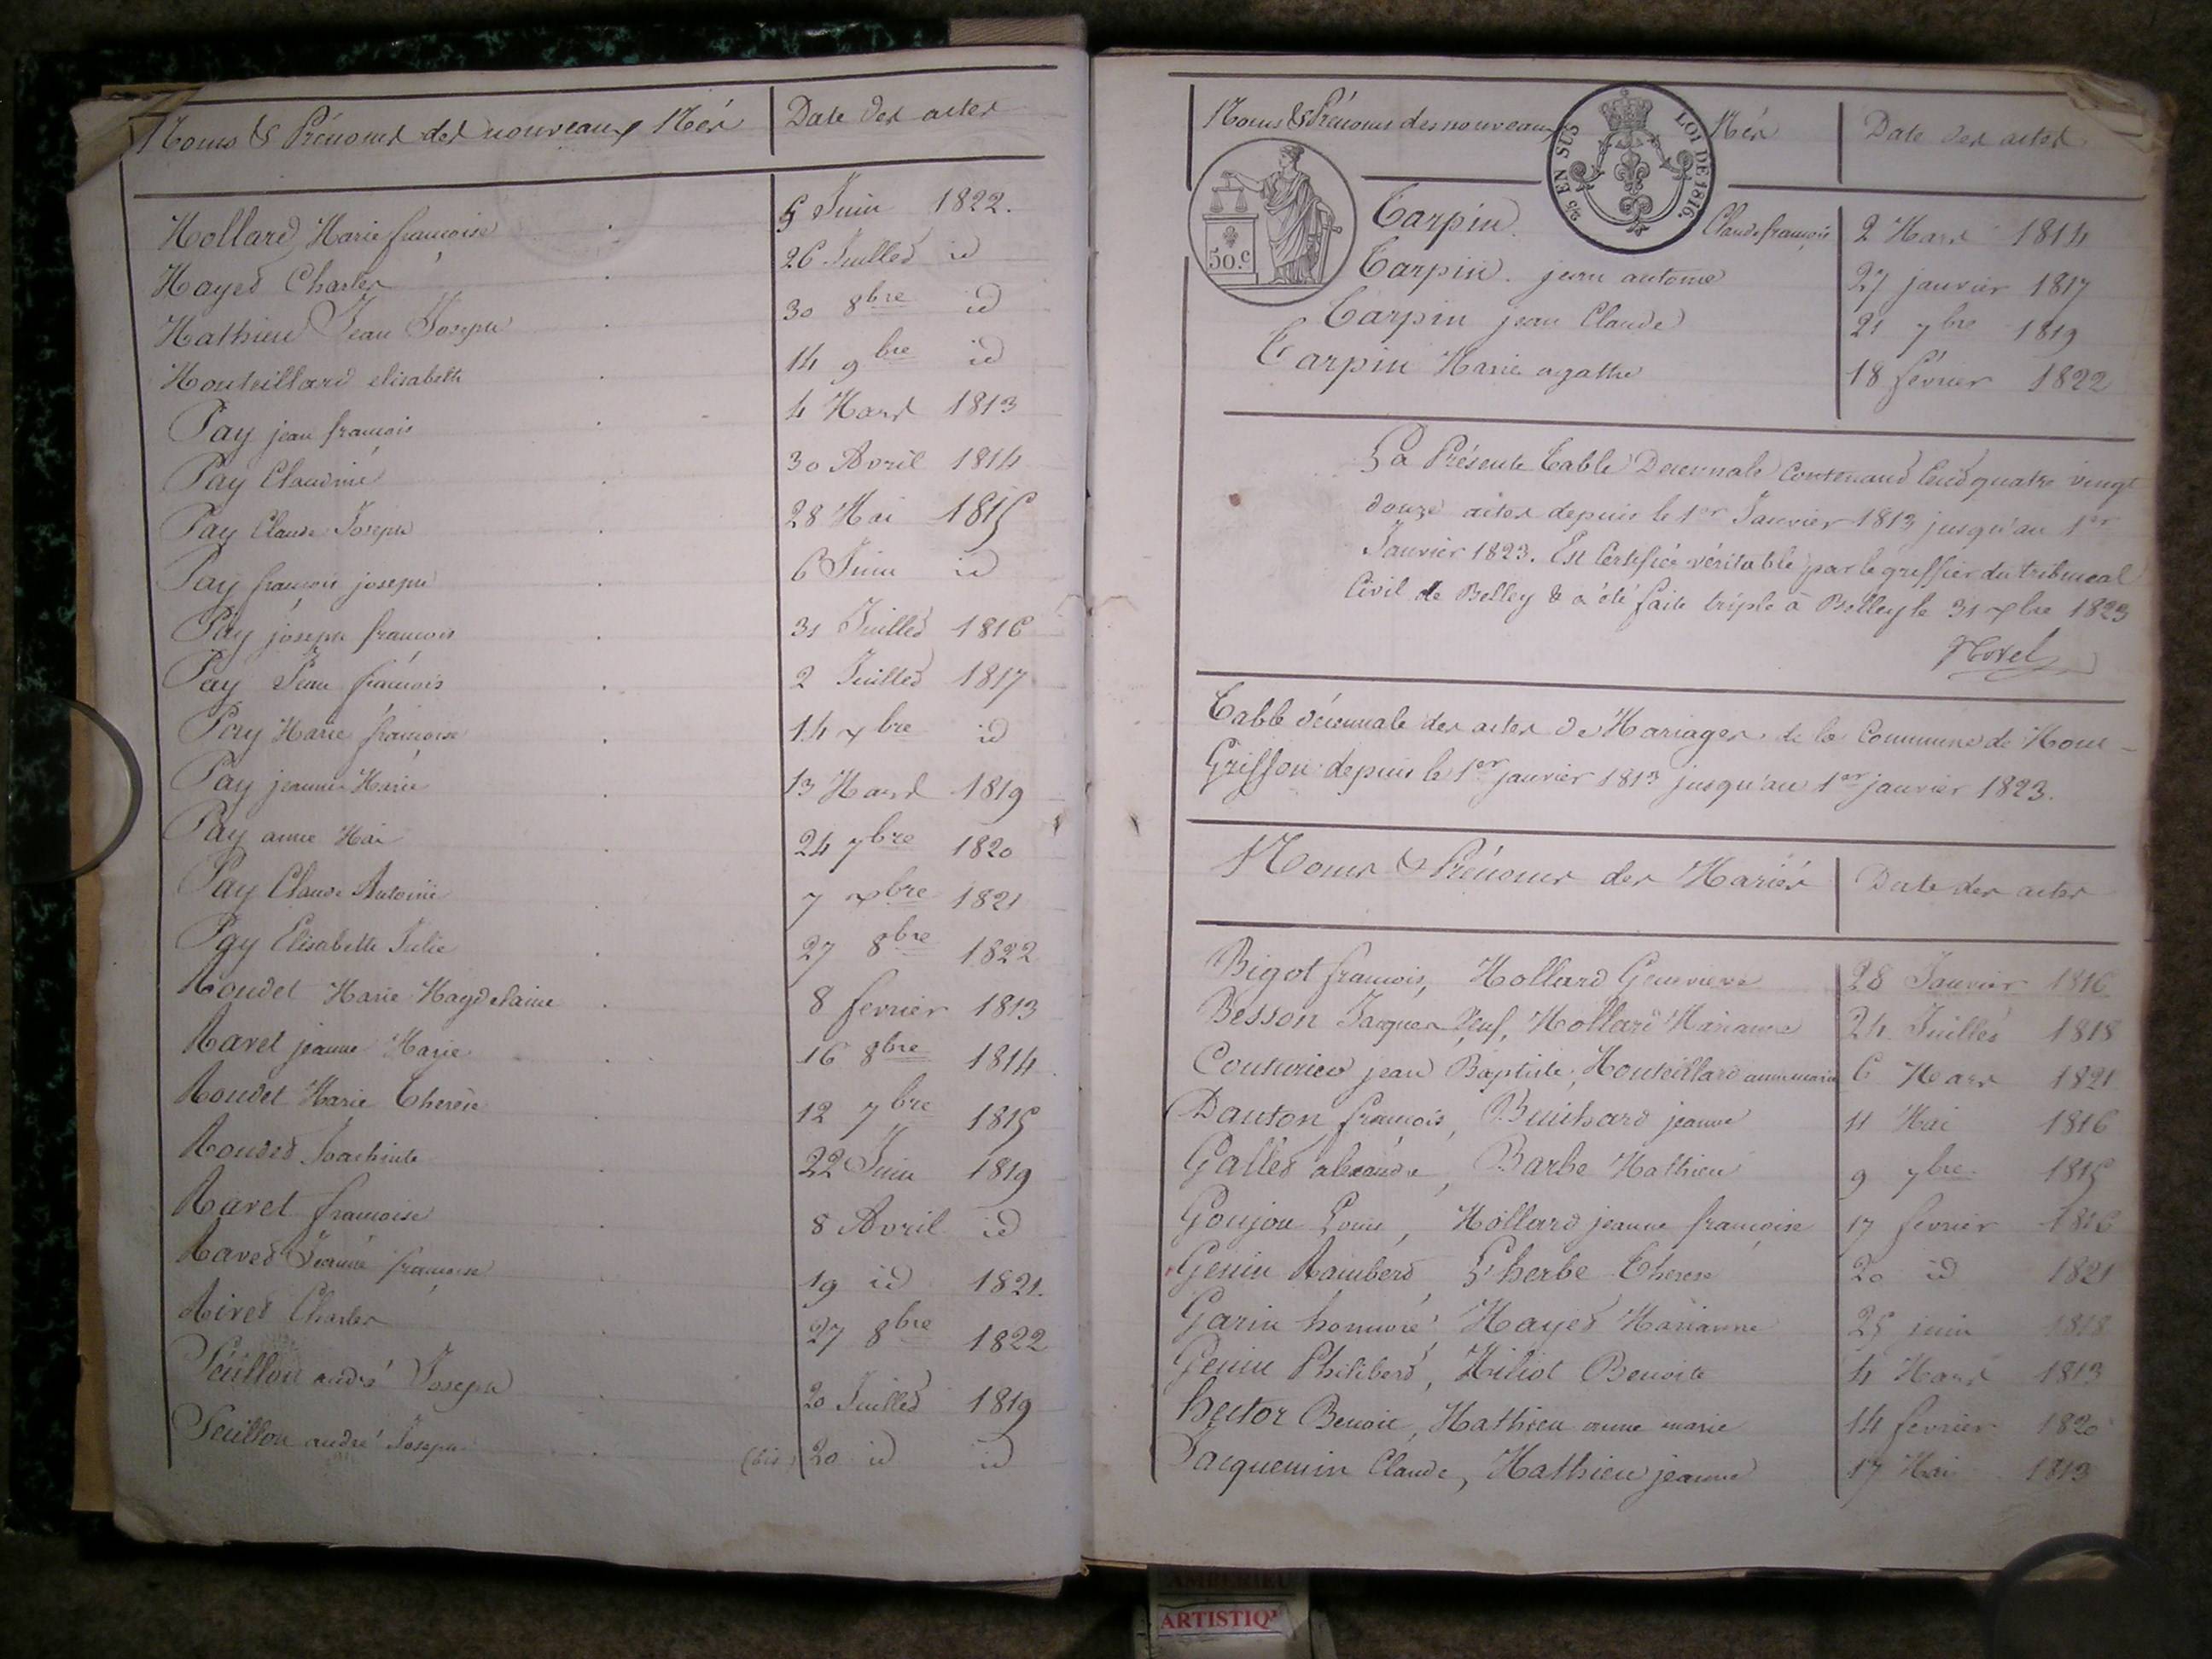 Noms & Prénoms des nouveaux Nés
Date des actes
Mollard Marie françoise 5 Juin 1822.
Mayet Charles 26 Juillet id
Mathieu Jean Joseph 30 8bre id
Monteillard elisabeth 14 9bre id
Pay jean françois 4 Mars 1813
Pay Claudine 30 Avril 1814
Pay Claude Joseph 28 Mai 1815
Pay françois joseph 6 Juin id
Pay joseph françois 31 Juillet 1816
Pay Jean françois 2 Juillet 1817
Pay Marie françoise 14 xbre id
Pay jeanne Marie 13 Mars 1819
Pay anne Mai 24 7bre 1820
Pay Claude Antoine 7 xbre 1821
Pay Elisabeth Julie 27 8bre 1822
Roudet Marie Magdelaine 8 fevrier 1813
Ravet jeanne Marie 16 8bre 1814
Roudet Marie Therèse 12 7bre 1815
Roudet Joachinte 22 Juin 1819
Ravet françoise 8 Avril id
Ravet Jeanne françoise 19 id 1821.
Rivet Charles 27 8bre 1822
Seuillon andré Joseph 20 Juillet 1819
Seuillon andré Joseph (bis) 20 id id
Noms & Prénoms des nouveaux Nés
Date des actes
EN SUS
LOI DE 1816.
50.c
Tarpin Claude françois 2 Mars 1814
Tarpin jean antoine 27 janvier 1817
Tarpin jean Claude 21 7bre 1819
Tarpin Marie agathe 18 février 1822
La Présente Table Decennale contenant Cent quatre vingt
douze actes depuis le 1er Janvier 1813 jusqu'au 1er
Janvier 1823. Est Certifiée véritable par le greffier du tribunal
Civil de Belley & a été faite triple à Belley le 31 xbre 1823
Table décennale des actes de Mariages de la Commune de Mont-
Griffon depuis le 1er janvier 1813 jusqu'au 1er janvier 1823.
Noms & Prénoms des Mariés
Date des actes
Bigot francois, Mollard Genevieve 28 Janvier 1816
Besson Jacques Veuf, Mollard Marianne 24 Juillet 1818
Couturier jean Baptiste, Monteillard anne marie 6 Mars 1821
Danton françois, Buinhard jeanne 11 Mai 1816
Gallet alexandre, Barbe Mathieu 9 7bre 1815
Goujou Louis, Mollard jeanne françoise 17 fevrier 1816
Genin Rambert, Lherbe Therese 20 id 1821
Garin honnoré, Mayet Marianne 25 juin 1818
Genin Philibert, Miliot Benoite 4 Mars 1813
hector Benoit, Mathieu anne marie 14 fevrier 1820
Jacquemin Claude, Mathieu jeanne 17 Mai 1813
AMBERIEU
ARTISTIQ